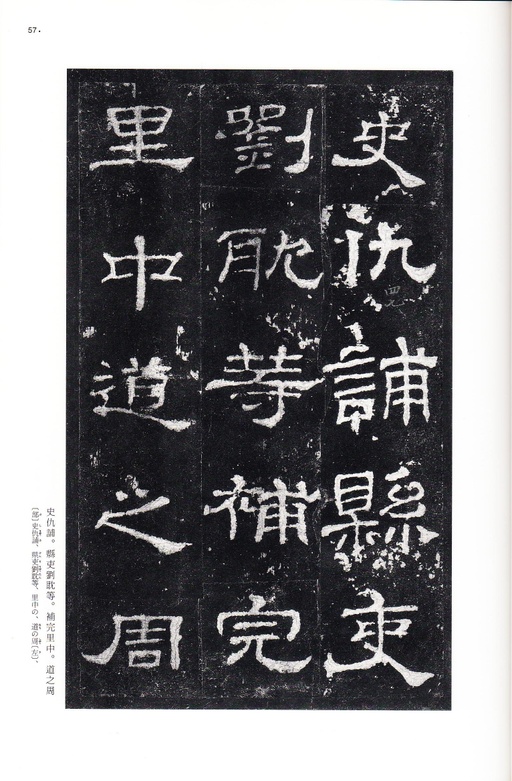 57.
史仇誧縣吏
劉耽等補完
里中道之周
史仇誧。縣吏劉耽等。補完里中。道之周
(部)史仇誧、県吏劉耽等、里中の、道の周(左)、